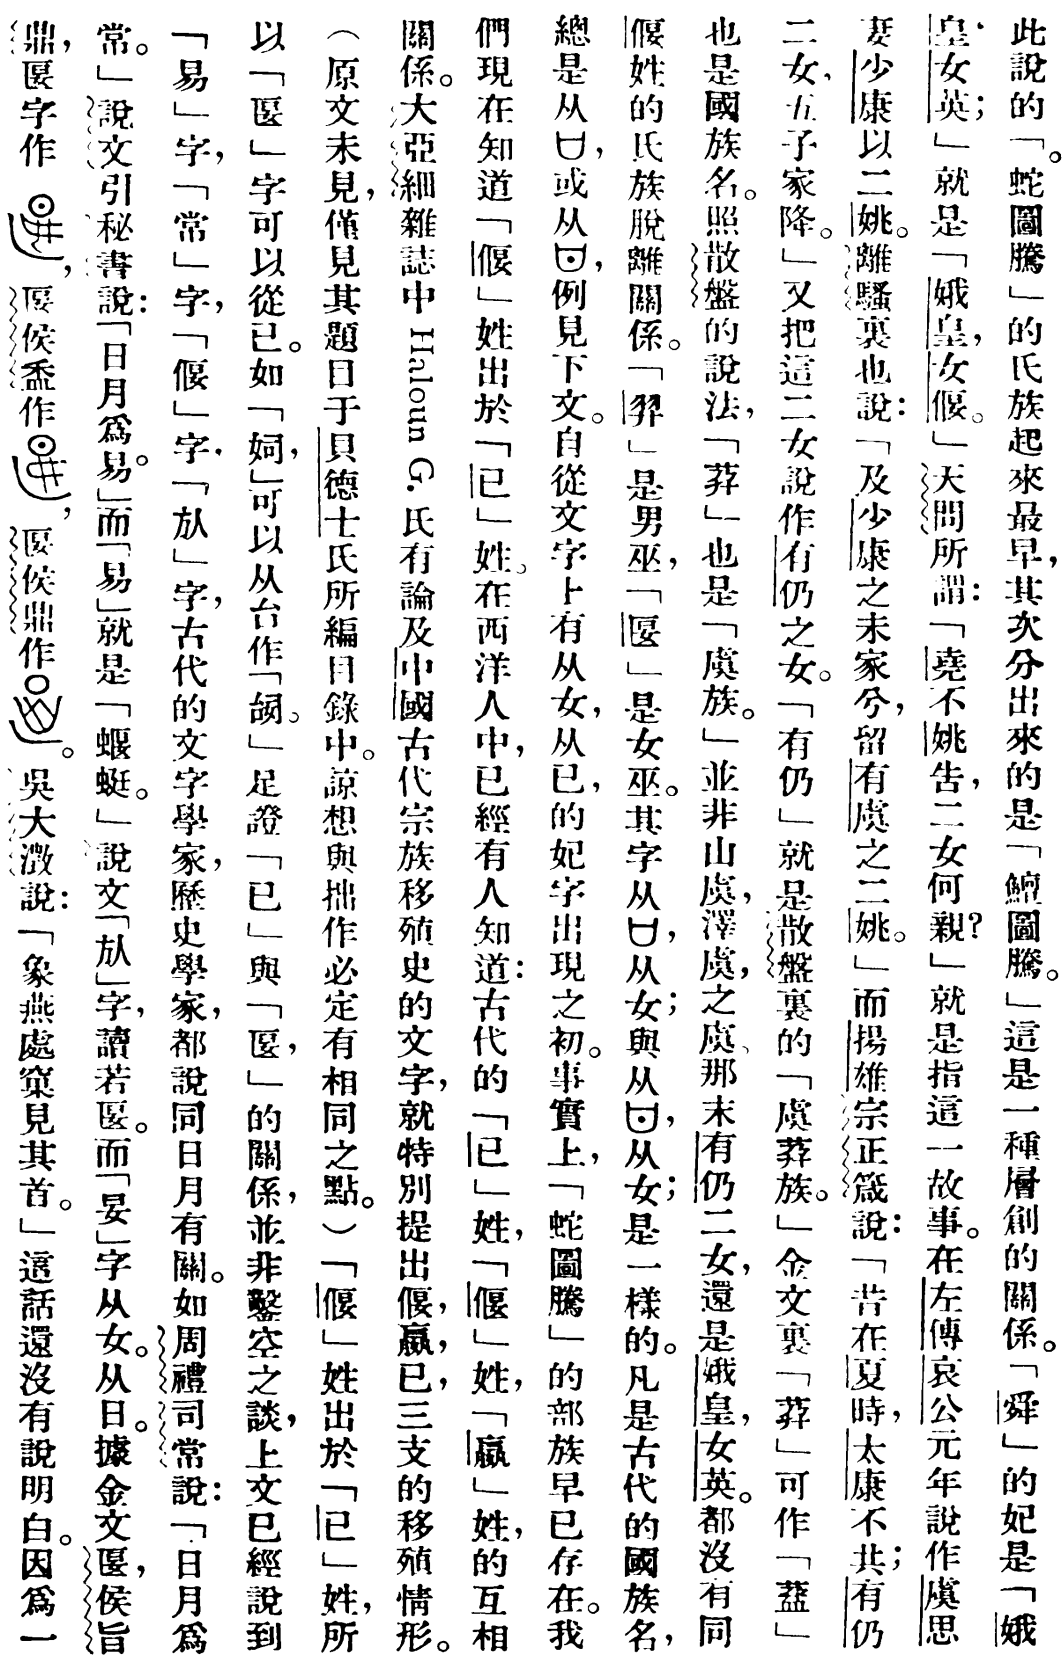 此說的「。蛇圖騰」的氏族起來最早，其次分出來的是「鱣圖騰。」這是一種層創的關係。「舜」的妃是「娥
皇·女英；」就是「娥皇，女偃。」天問所謂：「堯不姚告，二女何親？」就是指這一故事。在左傳哀公元年說作虞思
妻少康以二姚。離騷裏也說：「及少康之未家兮，留有虞之二姚。」而揚雄宗正箴說：「昔在夏時，太康不共；有仍
二女，五子家降。」又把這二女說作有仍之女。「有仍」就是散盤裏的「虞莽族。」金文裏「莽」可作「䒶」
也是國族名。照散盤的說法，「莽」也是「虞族。」並非山虞，澤虞，之虞、那末有仍二女，還是娥皇，女英。都沒有同
偃姓的氏族脫離關係。「羿」是男巫，「匽」是女巫。其字从㠯，从女；與从日，从女；是一樣的。凡是古代的國族名，
總是从凵，或从日，例見下文。自從文字上有从女，从巳，的妃字出現之初。事實上，「蛇圖騰」的部族早已存在。我
們現在知道「偃」姓出於「巳」姓。在西洋人中，已經有人知道：古代的「巳」姓，「偃」姓，「嬴」姓，的互相
關係。大亞細雜誌中 Haloun G. 氏有論及中國古代宗族移殖史的文字，就特別提出偃，嬴，巳，三支的移殖情形。
（原文未見，僅見其題目于貝德士氏所編目錄中。諒想與拙作必定有相同之點。）「偃」姓出於「巳」姓，所
以「匽」字可以從巳。如「始，」可以从台作「訇。」足證「巳」與「匽，」的關係，並非鑿空之談，上文已經說到
「易」字，「常」字，「偃」字，「㫃」字，古代的文字學家，歷史學家，都說同日月有關。如周禮司常說：「日月爲
常。」說文引秘書說：「日月爲易。」而「易」就是「蝘蜓。」說文「㫃」字，讀若匽。而「妟」字从女。从日。據金文匽，侯旨
鼎，匽字作 ，匽侯盉作 ，匽侯鼎作 。吳大澂說：「象燕處窠見其首。」這話還沒有說明白。因爲一